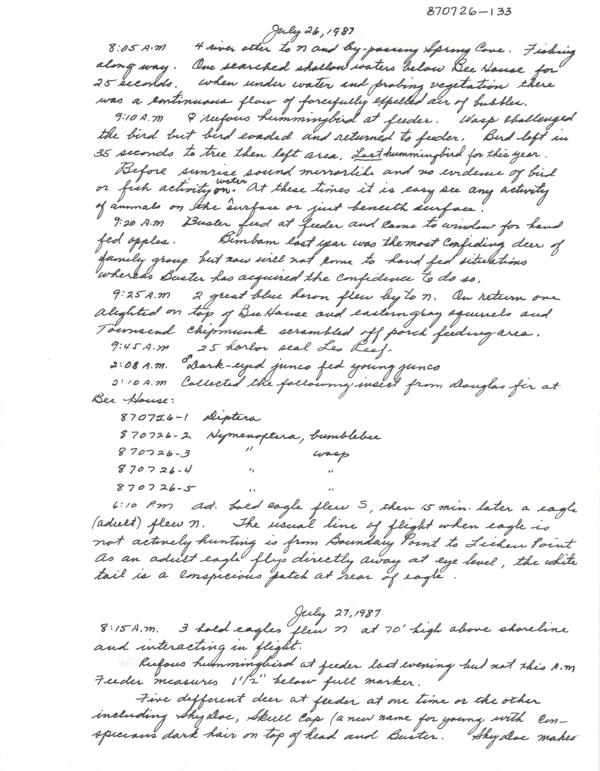 870726-133
July 26, 1987
8:05 A.M 4 river otter to N and by-passing Spring Cove. Fishing
along way. One searched shallow waters below Bee House for
25 seconds. When under water and probing vegetation there
was a continuous flow of forcefully expelled air of bubbles.
9:10 A.M ♀ rufous hummingbird at feeder. Wasp challenged
the bird but bird evaded and returned to feeder. Bird left in
35 seconds to tree then left area. Last hummingbird for this year.
Before sunrise sound mirrorlike and no evidence of bird
or fish activity on water. At these times it is easy see any activity
of animals on the surface or just beneath surface.
9:20 A.M Buster fed at feeder and came to window for hand
fed apples. Bimbam last year was the most confiding deer of
family group but now will not come to hand fed situations
whereas Buster has acquired the confidence to do so.
9:25 A.M 2 great blue heron flew by to N. On return one
alighted on top of Bee House and eastern gray squirrels and
Townsend chipmunk scrambled off porch feeding area.
9:45 A.M 25 harbor seal Leo Reef.
2:08 A.M. Dark-eyed junco fed young junco
2:10 A.M Collected the following insect from Douglas fir at
Bee House:
870726-1 Diptera
870726-2 Hymenoptera, bumblebee
870726-3 " wasp
870726-4 " "
870726-5 " "
6:10 PM ad. bald eagle flew S, then 15 min. later a eagle
(adult) flew N. The usual line of flight when eagle is
not actively hunting is from Boundary Point to Lichen Point
As an adult eagle flys directly away at eye level, the white
tail is a conspicious patch at rear of eagle.
July 27, 1987
8:15 A.M. 3 bald eagles flew N at 70' high above shoreline
and interacting in flight.
Rufous hummingbird at feeder last evening but not this A.M
Feeder measures 1 1/2" below full marker.
Five different deer at feeder at one time or the other
including Sky Doe, Skull Cap (a new name for young with con-
spicious dark hair on top of head and Buster. Sky Doe makes